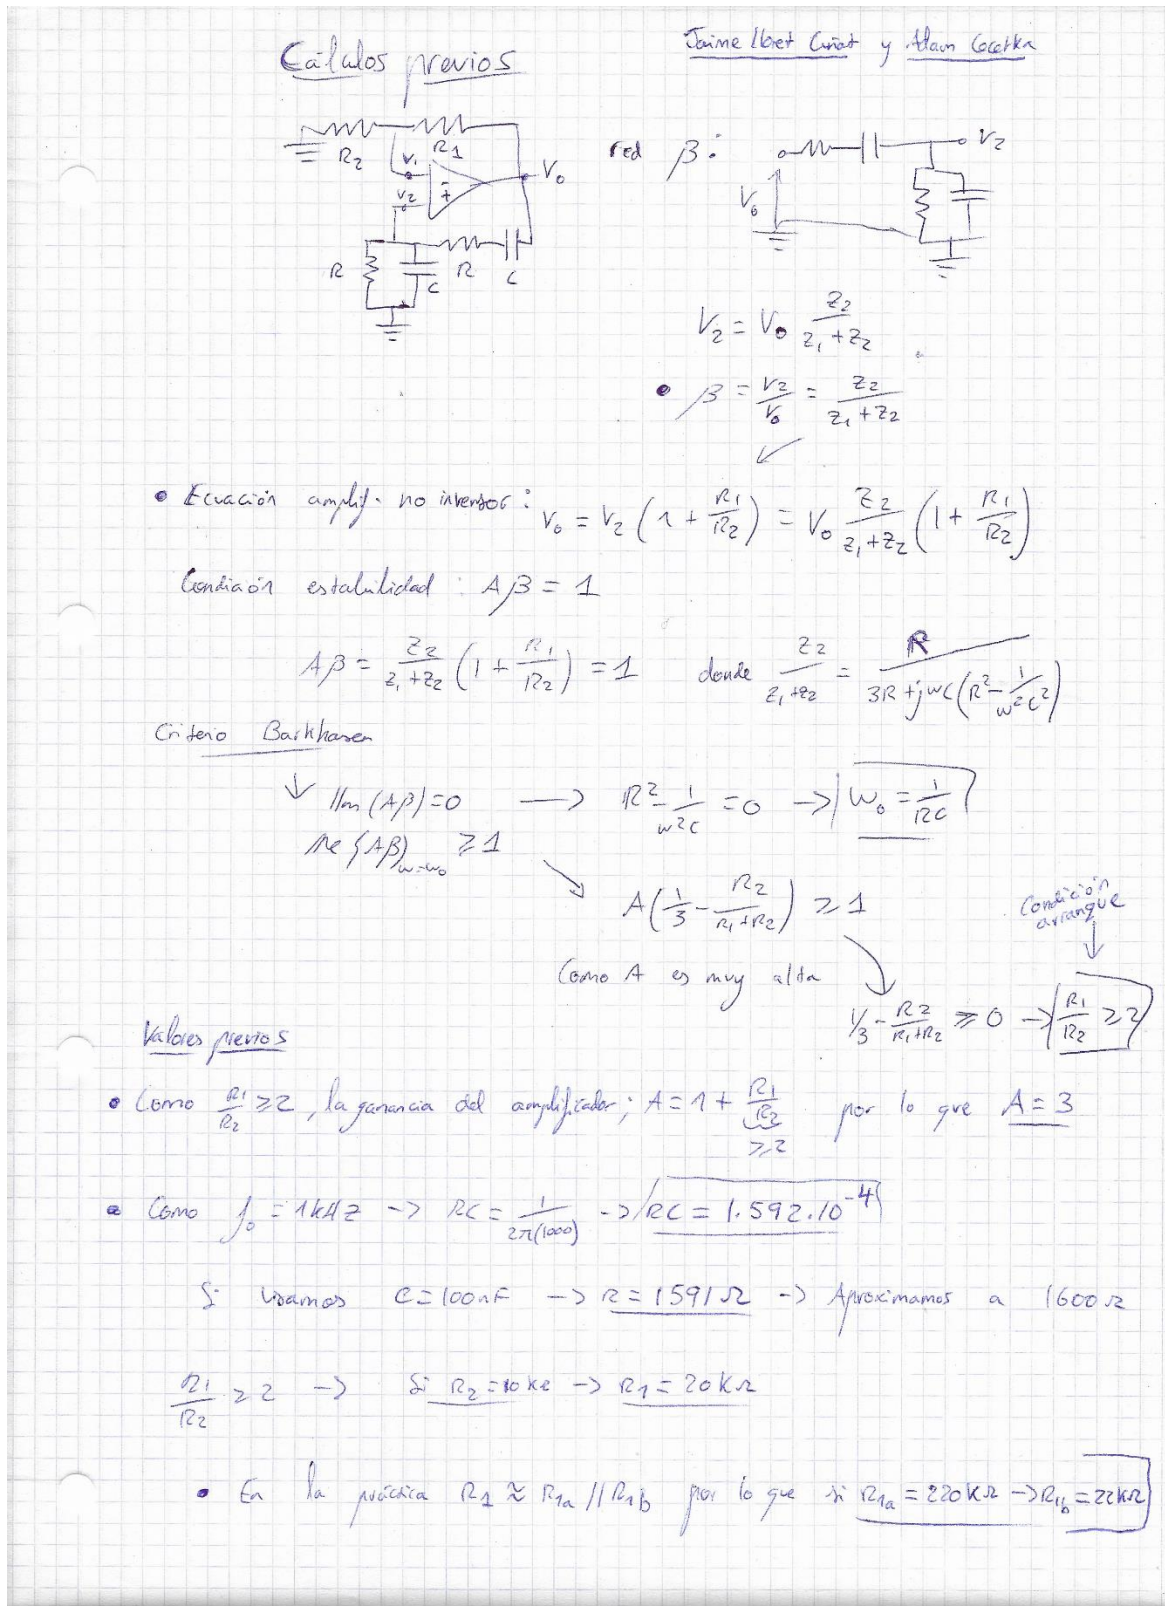 Cálculos previos
Jaime Lloret Cuñat y Adam
R2 R1
V1
V2
- +
V0
R C R C
red β:
V0
V2
V2 = V0 Z2/(Z1 + Z2)
• β = V2/V0 = Z2/(Z1 + Z2)
• Ecuación amplif. no inversor: V0 = V2 (1 + R1/R2) = V0 Z2/(Z1 + Z2) (1 + R1/R2)
Condición estabilidad: Aβ = 1
Aβ = Z2/(Z1 + Z2) (1 + R1/R2) = 1 donde Z2/(Z1 + Z2) = R/(3R + jωC(R² - 1/(ω²C²)))
Criterio Barkhasen
↓ Im(Aβ) = 0 → R² - 1/(ω²C) = 0 → ω0 = 1/RC
Re{Aβ}ω=ω0 ≥ 1
A(1/3 - R2/(R1 + R2)) ≥ 1
Condición arranque
Como A es muy alta
1/3 - R2/(R1 + R2) ≥ 0 → R1/R2 ≥ 2
Valores previos
• Como R1/R2 ≥ 2, la ganancia del amplificador; A = 1 + R1/R2 por lo que A = 3
≥ 2
• Como f0 = 1kHZ → RC = 1/(2π(1000)) → RC = 1.592.10^-4
Si usamos C = 100nF → R = 1591Ω → Aproximamos a 1600Ω
R1/R2 ≥ 2 → Si R2 = 10kΩ → R1 = 20kΩ
• En la práctica R1 ≈ R1a // R1b por lo que si R1a = 220kΩ → R1b = 22kΩ